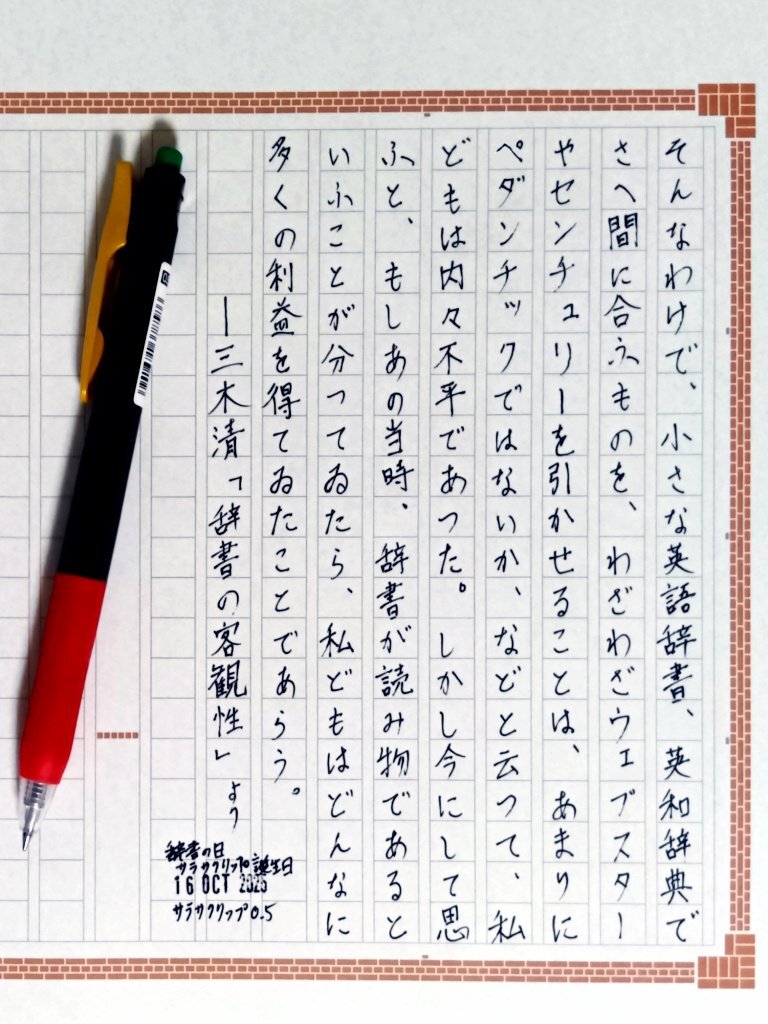 そんなわけで、小さな英語辞書、英和辞典で
さへ間に合ふものを、わざわざウェブスター
やセンチュリーを引かせることは、あまりに
ペダンチックではないか、などと云つて、私
どもは内々不平であつた。しかし今にして思
ふと、もしあの当時、辞書が読み物であると
いふことが分つてゐたら、私どもはどんなに
多くの利益を得てゐたことであらう。
―三木清「辞書の客観性」より
辞書の日
サラサクリップ誕生日
16 OCT 2025
サラサクリップ0.5